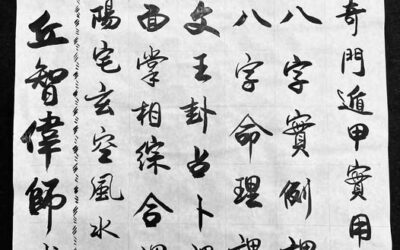 奇門遁甲實用
八字實例課
八字命理課
文王卦占卜課
面掌相綜合課
陽宅玄空風水
丘智偉師